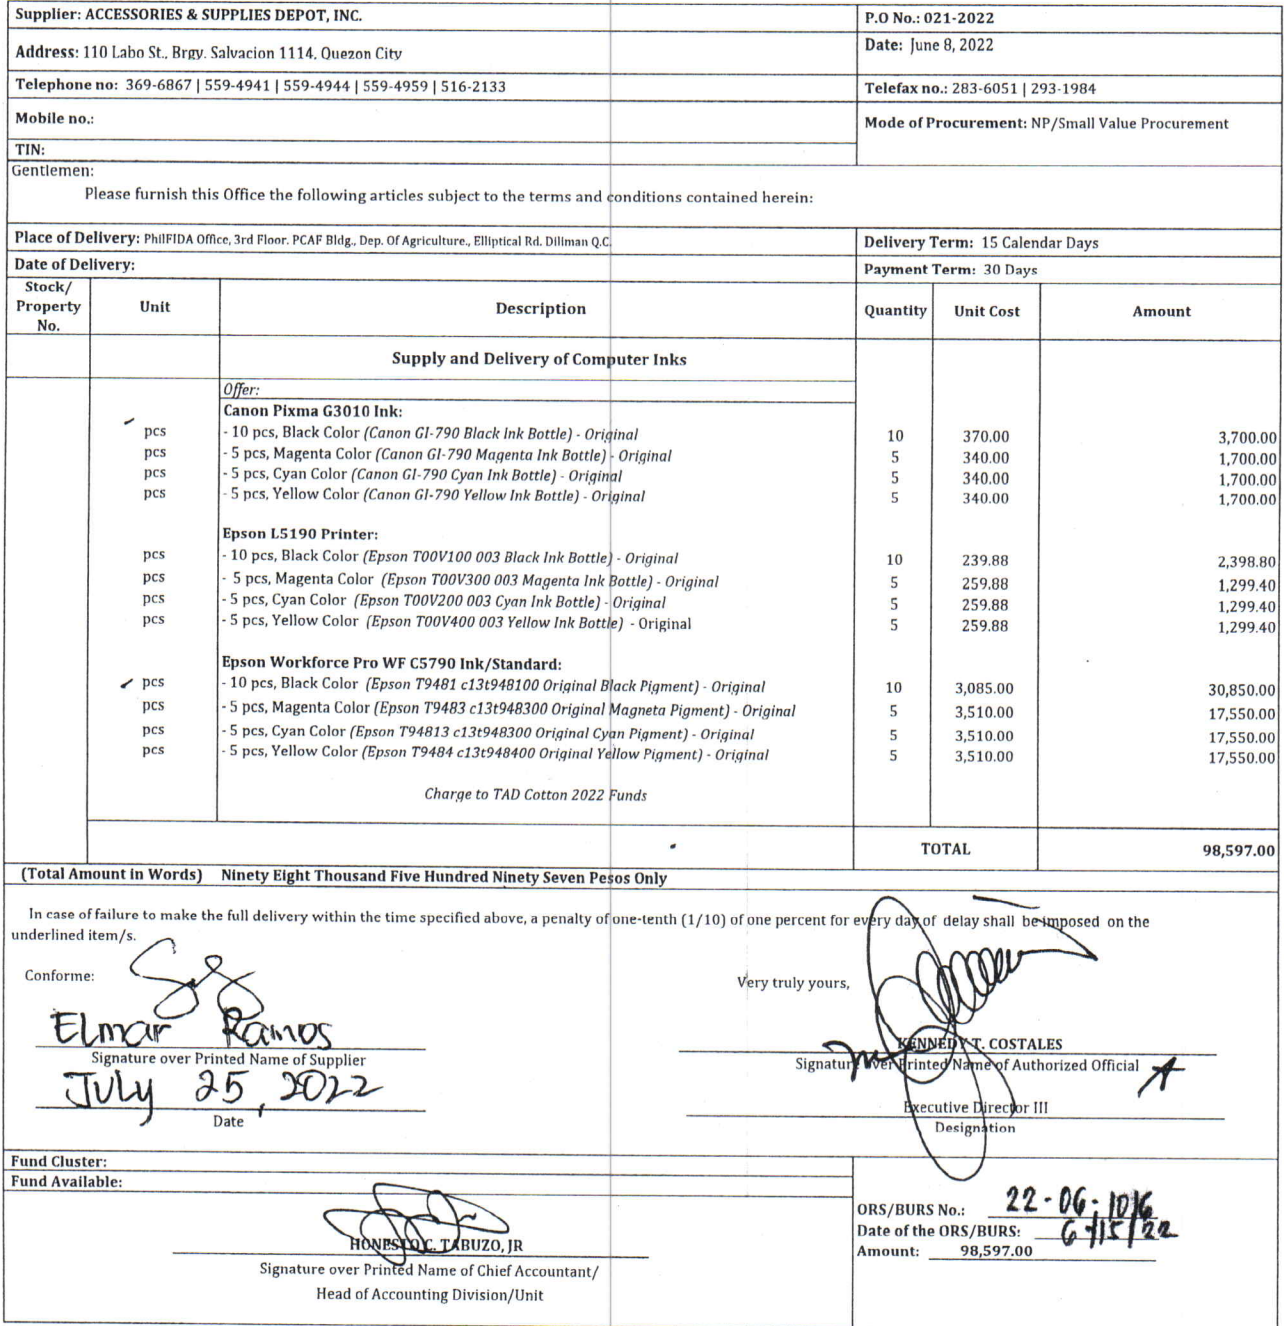 Supplier: ACCESSORIES & SUPPLIES DEPOT, INC.
P.O No.: 021-2022
Address: 110 Labo St., Brgy. Salvacion 1114, Quezon City
Date: June 8, 2022
Telephone no: 369-6867 | 559-4941 | 559-4944 | 559-4959 | 516-2133
Telefax no.: 283-6051 | 293-1984
Mobile no.:
Mode of Procurement: NP/Small Value Procurement
TIN:
Gentlemen:
Please furnish this Office the following articles subject to the terms and conditions contained herein:
Place of Delivery: PhilFIDA Office, 3rd Floor. PCAF Bldg., Dep. Of Agriculture., Elliptical Rd. Diliman Q.C.
Delivery Term: 15 Calendar Days
Date of Delivery:
Payment Term: 30 Days
Stock/ Property No. Unit Description Quantity Unit Cost Amount
Supply and Delivery of Computer Inks
Offer:
Canon Pixma G3010 Ink:
pcs - 10 pcs, Black Color (Canon GI-790 Black Ink Bottle) - Original 10 370.00 3,700.00
pcs - 5 pcs, Magenta Color (Canon GI-790 Magenta Ink Bottle) - Original 5 340.00 1,700.00
pcs - 5 pcs, Cyan Color (Canon GI-790 Cyan Ink Bottle) - Original 5 340.00 1,700.00
pcs - 5 pcs, Yellow Color (Canon GI-790 Yellow Ink Bottle) - Original 5 340.00 1,700.00
Epson L5190 Printer:
pcs - 10 pcs, Black Color (Epson T00V100 003 Black Ink Bottle) - Original 10 239.88 2,398.80
pcs - 5 pcs, Magenta Color (Epson T00V300 003 Magenta Ink Bottle) - Original 5 259.88 1,299.40
pcs - 5 pcs, Cyan Color (Epson T00V200 003 Cyan Ink Bottle) - Original 5 259.88 1,299.40
pcs - 5 pcs, Yellow Color (Epson T00V400 003 Yellow Ink Bottle) - Original 5 259.88 1,299.40
Epson Workforce Pro WF C5790 Ink/Standard:
pcs - 10 pcs, Black Color (Epson T9481 c13t948100 Original Black Pigment) - Original 10 3,085.00 30,850.00
pcs - 5 pcs, Magenta Color (Epson T9483 c13t948300 Original Magneta Pigment) - Original 5 3,510.00 17,550.00
pcs - 5 pcs, Cyan Color (Epson T94813 c13t948300 Original Cyan Pigment) - Original 5 3,510.00 17,550.00
pcs - 5 pcs, Yellow Color (Epson T9484 c13t948400 Original Yellow Pigment) - Original 5 3,510.00 17,550.00
Charge to TAD Cotton 2022 Funds
TOTAL 98,597.00
(Total Amount in Words) Ninety Eight Thousand Five Hundred Ninety Seven Pesos Only
In case of failure to make the full delivery within the time specified above, a penalty of one-tenth (1/10) of one percent for every day of delay shall be imposed on the
underlined item/s.
Conforme:
Very truly yours,
Elmar Ramos
KENNEDY T. COSTALES
Signature over Printed Name of Supplier
Signature over Printed Name of Authorized Official
July 25, 2022
Date
Executive Director III
Designation
Fund Cluster:
Fund Available:
ORS/BURS No.: 22-06-1016
Date of the ORS/BURS: 6/15/22
Amount: 98,597.00
HONESTO C. TABUZO, JR
Signature over Printed Name of Chief Accountant/
Head of Accounting Division/Unit